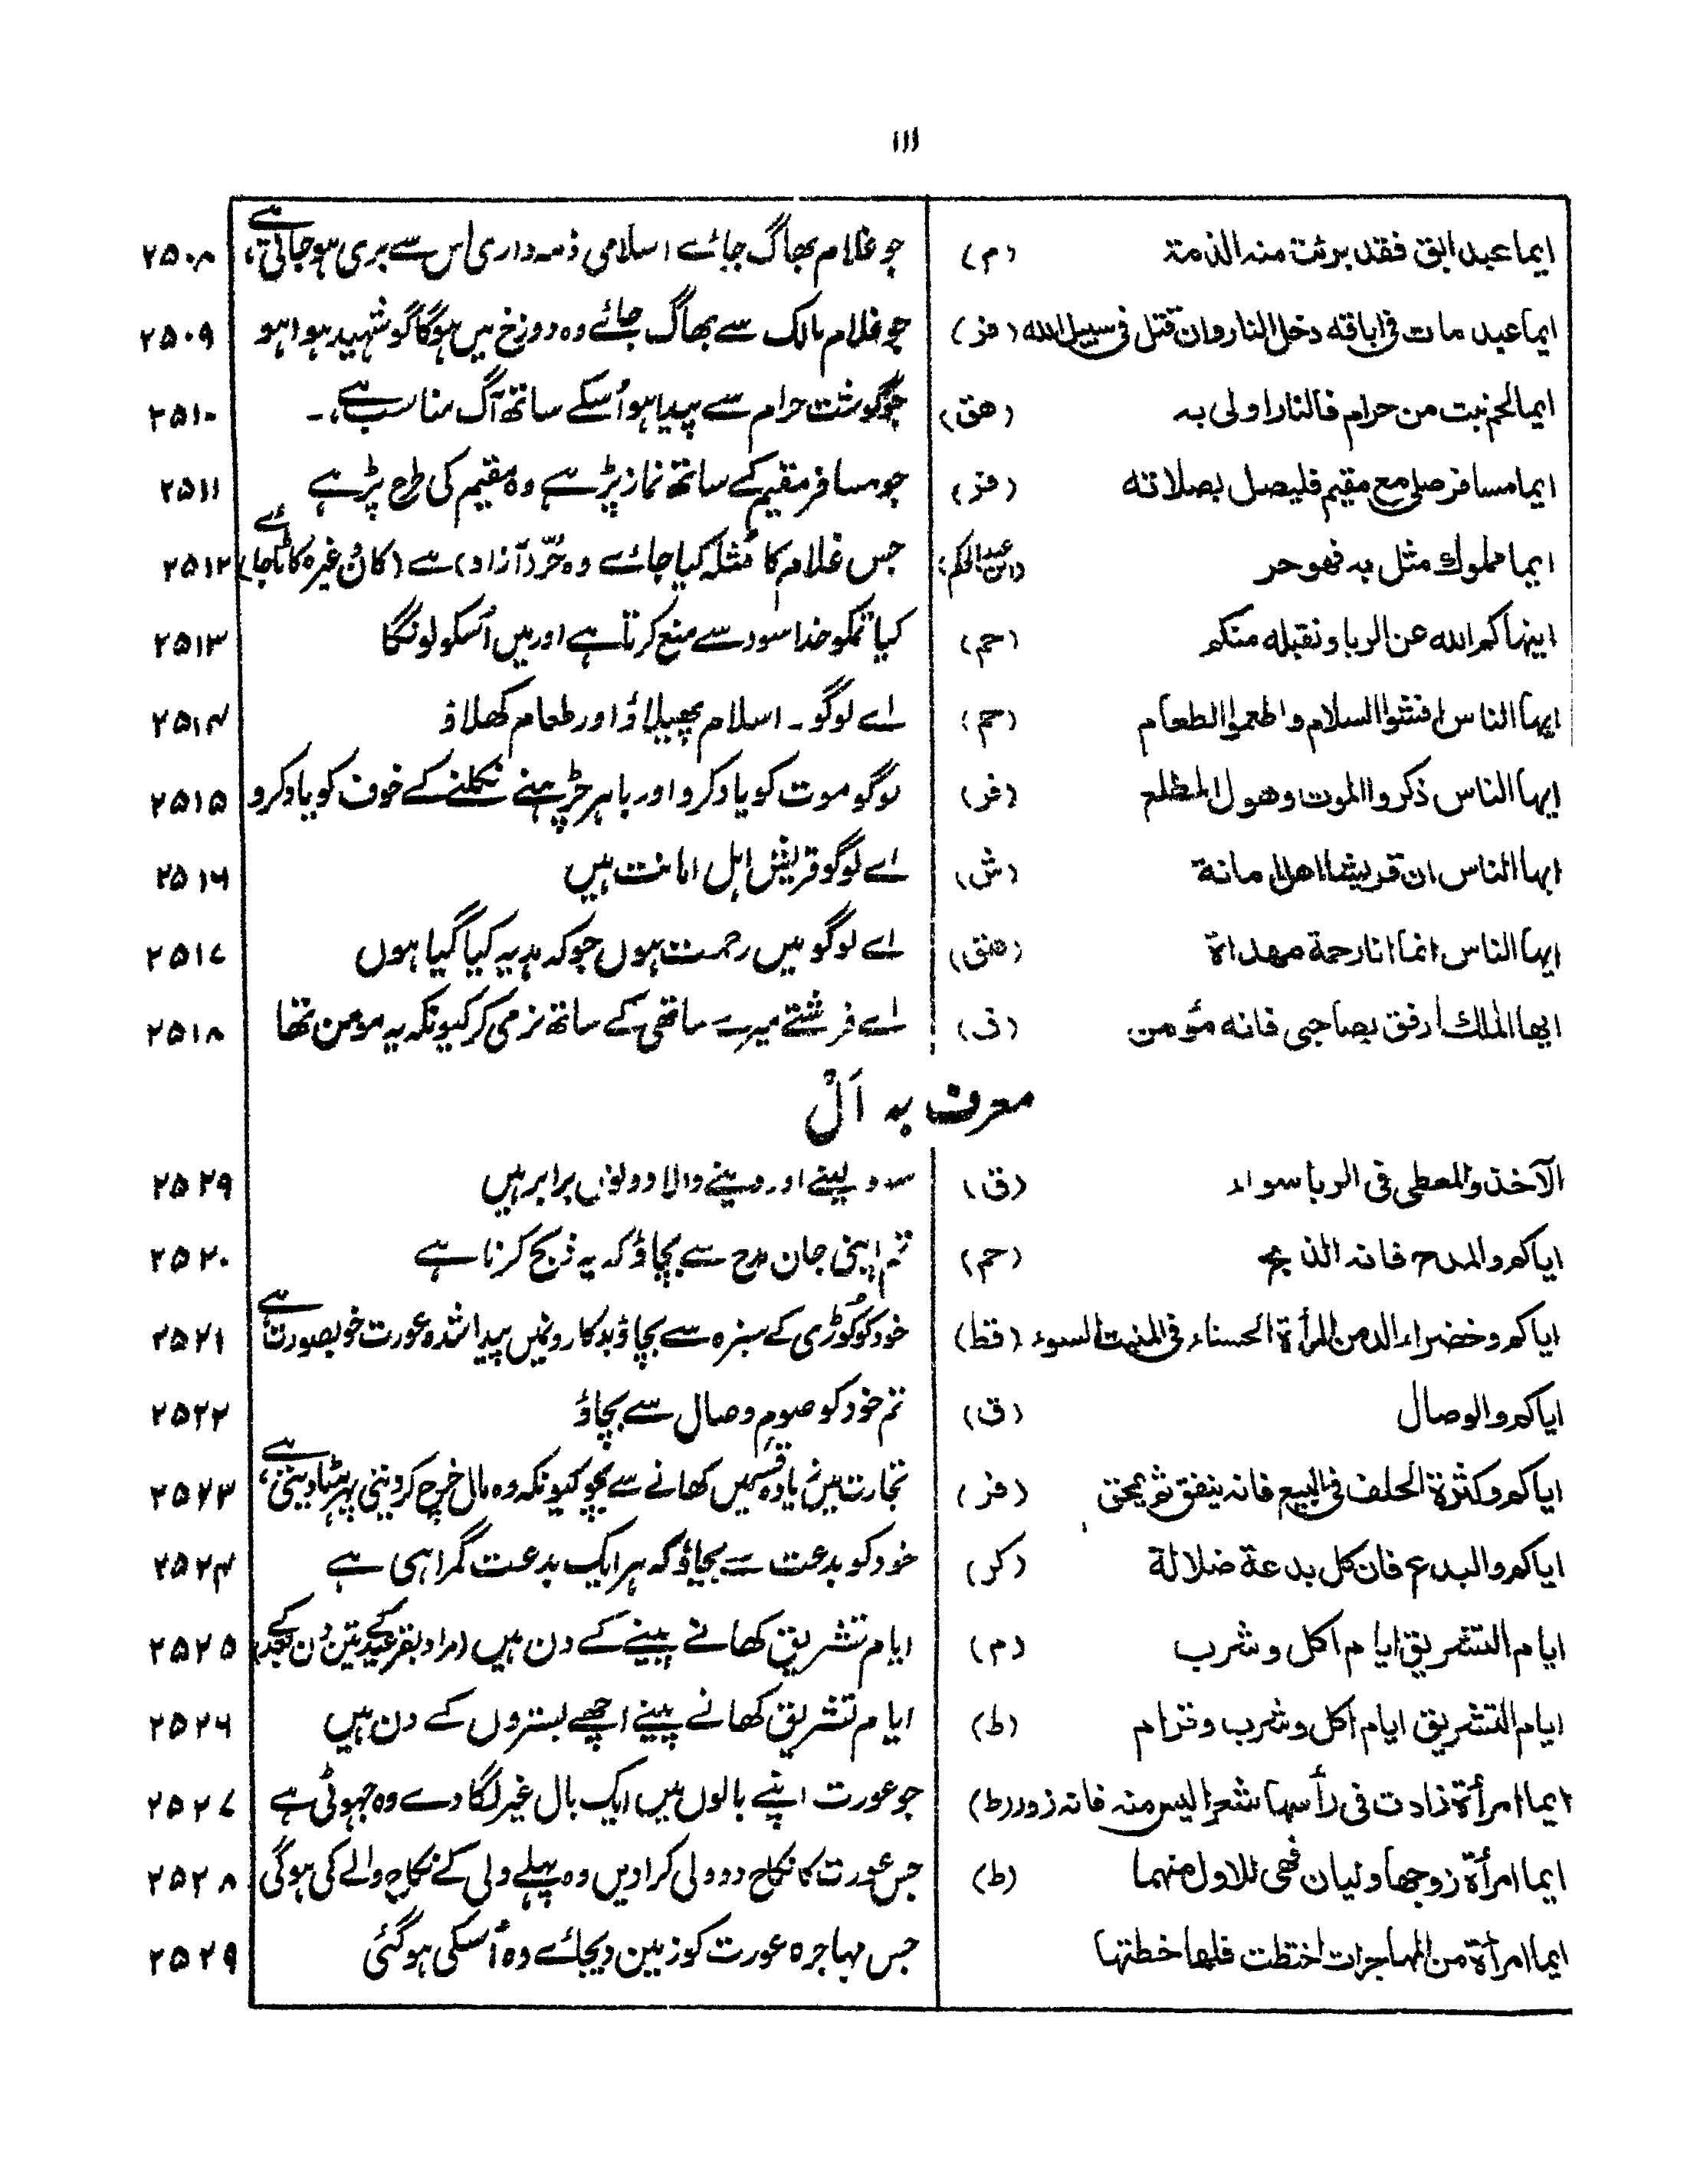 ۱۱۱
ایما عبد ابق فقد برئت منه الذمة (م) جو غلام بھاگ جائے اسلامی ذمہ داری اس سے بری ہو جاتی ہے، ۲۵۰۸
ایما عبد مات فی اباقه دخل النار وان قتل فی سبیل الله (فز) جو غلام مالک سے بھاگ جائے وہ دوزخ میں ہوگا گو شہید ہوا ہو ۲۵۰۹
ایما لحم نبت من حرام فالنار اولی به (هق) جو گوشت حرام سے پیدا ہو اُسکے ساتھ آگ مناسب ہے۔ ۲۵۱۰
ایما مسافر صلی مع مقیم فلیصل بصلاته (فز) جو مسافر مقیم کے ساتھ نماز پڑہے وہ مقیم کی طرح پڑہے ۲۵۱۱
ایما مملوك مثل به فهو حر (ابن عبد الحکم) جس غلام کا مُثلہ کیا جائے وہ حُرّ (آزاد) ہے (کان وغیرہ کاٹا جائے) ۲۵۱۲
اینهاکم الله عن الربا ونقبله منکم (حم) کیا تمکو خدا سود سے منع کرتا ہے اور میں اُسکو لونگا ۲۵۱۳
ایها الناس افشوا السلام واطعموا الطعام (حم) اے لوگو۔ اسلام پھیلاؤ اور طعام کھلاؤ ۲۵۱۴
ایها الناس ذکروا الموت وهول المطلع (فر) لوگو موت کو یاد کرو اور باہر چڑہنے نکلنے کے خوف کو یاد کرو ۲۵۱۵
ایها الناس ان قریشا اهل امانة (ش) اے لوگو قریش اہل امانت ہیں ۲۵۱۶
ایها الناس انما انا رحمة مهداة (هق) اے لوگو میں رحمت ہوں جو کہ ہدیہ کیا گیا ہوں ۲۵۱۷
ایها الملك ارفق بصاحبی فانه مؤمن (ف) اے فرشتے میرے ساتھی کے ساتھ نرمی کر کیونکہ یہ مومن تھا ۲۵۱۸
معرف بہ اَلْ
الآخذ والمعطی فی الربا سواء (ق) سود لینے اور دینے والا دونوں برابر ہیں ۲۵۲۹
ایاکم والمدح فانه الذبح (حم) تم اپنی جان مدح سے بچاؤ کہ یہ ذبح کرنا ہے ۲۵۲۰
ایاکم وخضراء الدمن المرأة الحسناء فی المنبت السوء (قط) خود کو کُوڑی کے سبزہ سے بچاؤ بدکارونمیں پیدا شدہ عورت خوبصورت ہے ۲۵۲۱
ایاکم والوصال (ق) تم خود کو صوم وصال سے بچاؤ ۲۵۲۲
ایاکم وکثرة الحلف فی البیع فانه ینفق ثم یمحق (فز) تجارت میں زیادہ قسمیں کھانے سے بچو کیونکہ وہ مال خرچ کر دیتی پہر مٹا دیتی ہے، ۲۵۲۳
ایاکم والبدع فان کل بدعة ضلالة (کر) خود کو بدعت سے بچاؤ کہ ہر ایک بدعت گمراہی ہے ۲۵۲۴
ایام التشریق ایام اکل وشرب (م) ایام تشریق کھانے پینے کے دن ہیں (مراد بقر عید کے تین دن بعد کے) ۲۵۲۵
ایام التشریق ایام اکل وشرب وقرام (ط) ایام تشریق کھانے پینے اچھے بستروں کے دن ہیں ۲۵۲۶
ایما امرأة زادت فی رأسها شعرا لیس منه فانه زور (ط) جو عورت اپنے بالوں میں ایک بال غیر لگا دے وہ جہوٹی ہے ۲۵۲۷
ایما امرأة زوجها ولیان فهی للاول منهما (ط) جس عورت کا نکاح دو ولی کرا دیں وہ پہلے ولی کے نکاح والے کی ہوگی ۲۵۲۸
ایما امرأة من المهاجرات اختطت فلها خطتها جس مہاجرہ عورت کو زمین دیجائے وہ اُسکی ہوگئی ۲۵۲۹